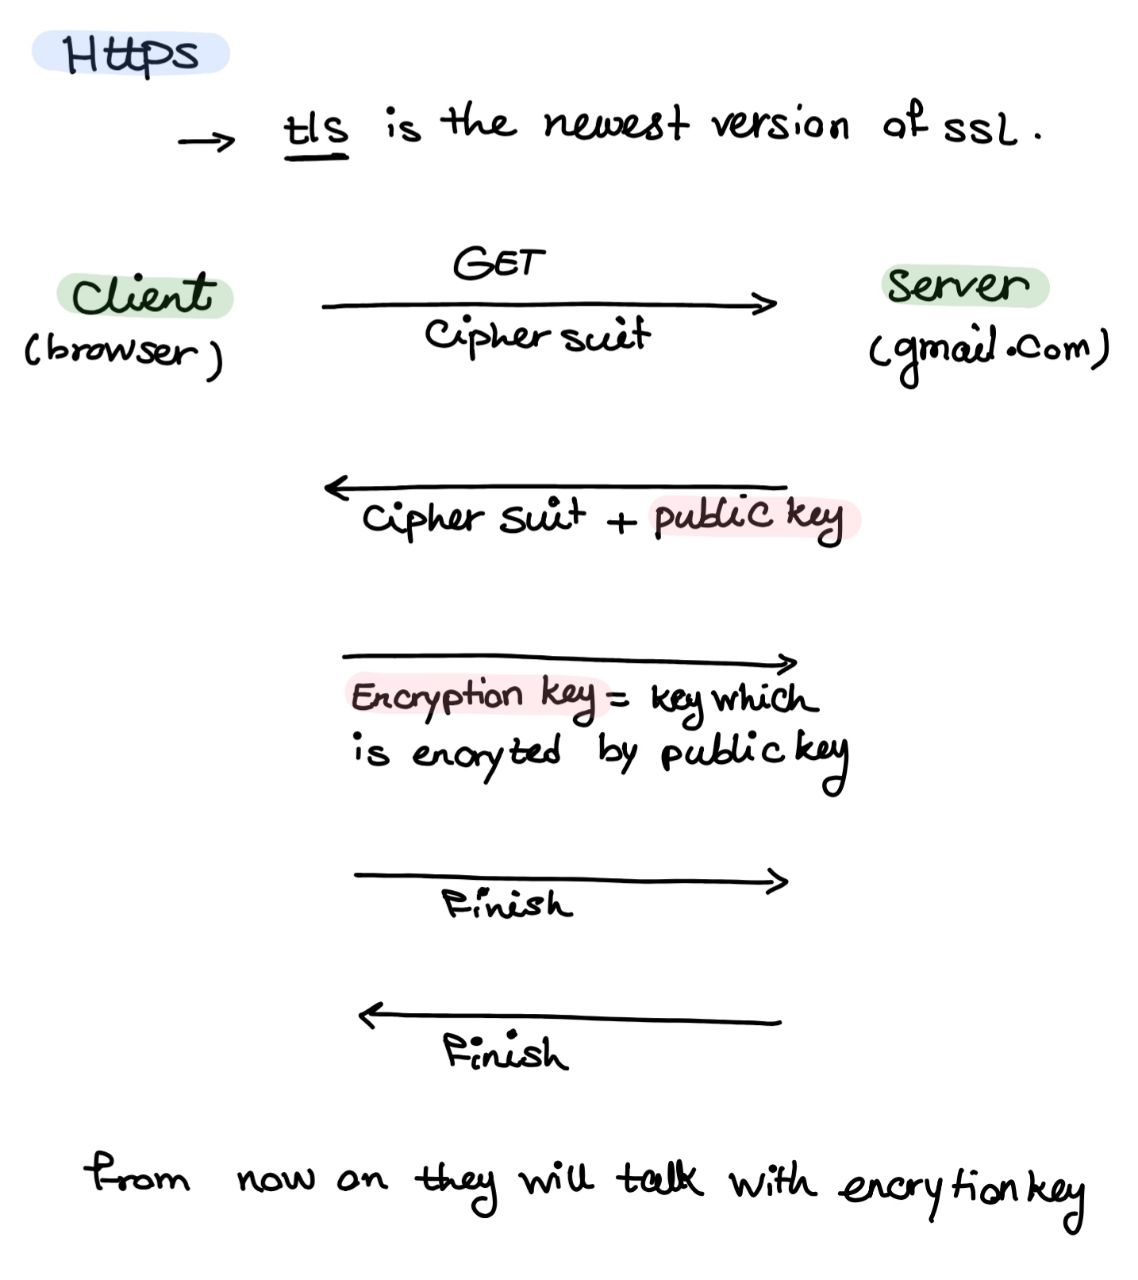 Https
→ tls is the newest version of SSL.
GET
Client
Server
Cipher suit
(browser)
(gmail.com)
Cipher suit + public key
Encryption key = key which
is enoryted by public key
Finish
Finish
From now on they will talk with encrytion key